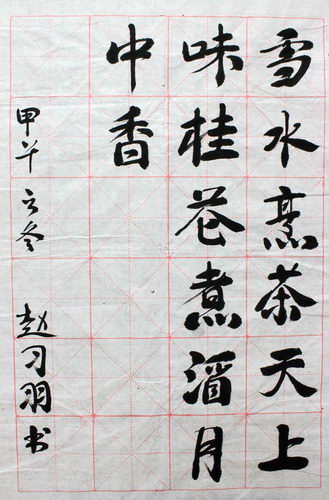 雪水烹茶天上
味桂花煮酒月
中香
甲午之冬 赵习羽书